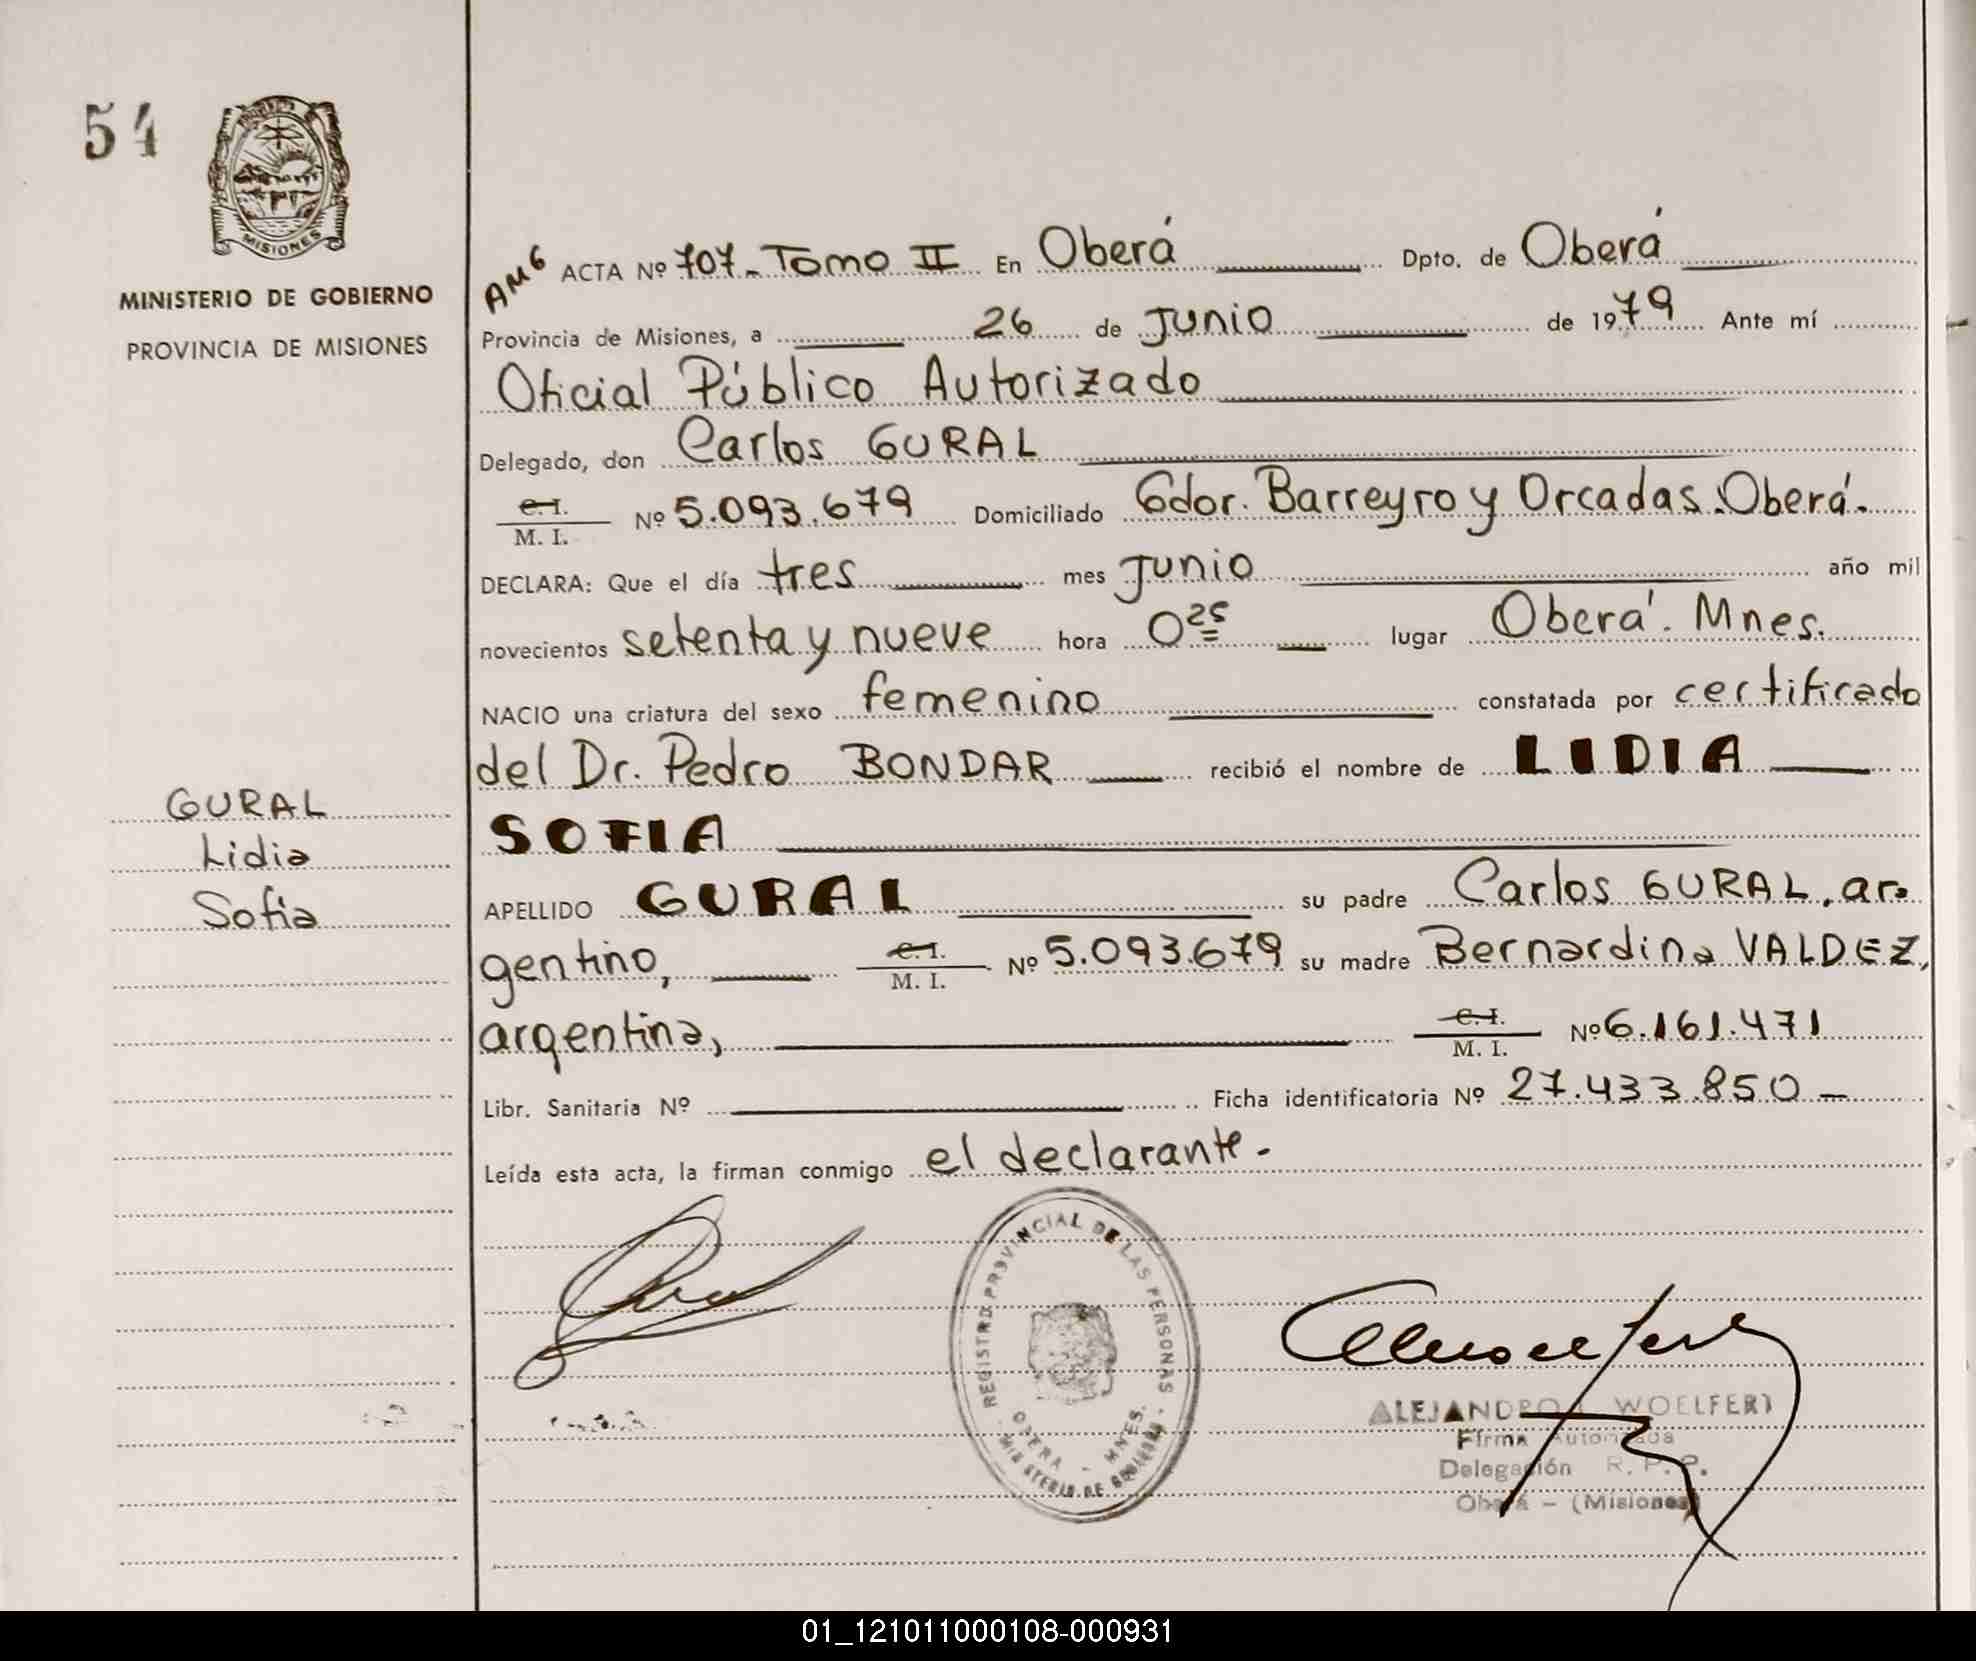 54
MISIONES
MINISTERIO DE GOBIERNO
PROVINCIA DE MISIONES
AMG ACTA Nº 707- Tomo II En Oberá Dpto. de Oberá
Provincia de Misiones, a 26 de Junio de 1979 Ante mí
Oficial Público Autorizado
Delegado, don Carlos GURAL
C.I. M. I. Nº 5.093.679 Domiciliado Gdor. Barreyro y Orcadas. Oberá.
DECLARA: Que el día tres mes Junio año mil
novecientos setenta y nueve hora 0 25 lugar Oberá. Mnes.
NACIO una criatura del sexo femenino constatada por certificado
del Dr. Pedro BONDAR recibió el nombre de LIDIA
SOFIA
APELLIDO GURAL su padre Carlos GURAL, ar-
gentino, C.I. M. I. Nº 5.093.679 su madre Bernardina VALDEZ,
argentina, C.I. M. I. Nº 6.161.471
Libr. Sanitaria Nº Ficha identificatoria Nº 27.433.850 -
Leída esta acta, la firman conmigo el declarante.-
GURAL
Lidia
Sofia
REGISTRO PROVINCIAL DE LAS PERSONAS
OBERA - MNES.
MINISTERIO DE GOBIERNO
ALEJANDRO WOELFERT
Firma Autorizada
Delegación R. P. P.
Oberá - (Misiones)
01_121011000108-000931